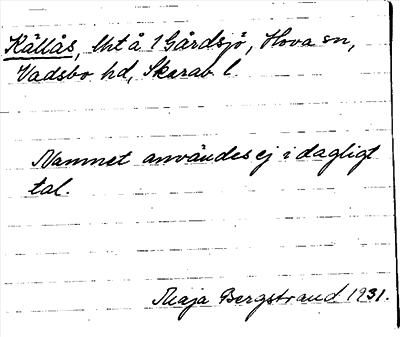 Källås, lht å 1 Gårdsjö, Hova sn,
Vadsbo hd, Skarab l.
Namnet användes ej i dagligt
tal.
Maja Bergstrand 1931.